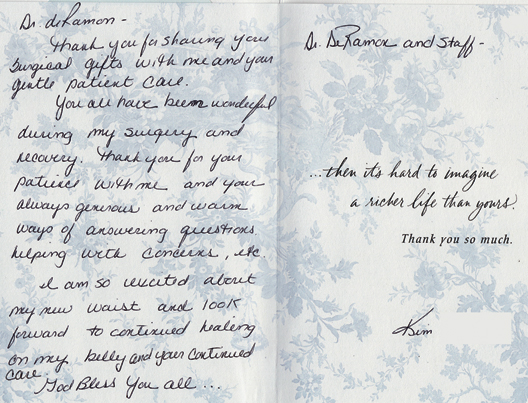 Dr. deRamon -
Thank you for sharing your
surgical gifts with me and your
gentle patient care.
You all have been wonderful
during my surgery and
recovery. Thank you for your
patience with me and your
always generous and warm
ways of answering questions,
helping with concerns, etc.
I am so excited about
my new waist and look
forward to continued healing
on my belly and your continued
care.
God Bless You all ...
Dr. DeRamon and Staff -
...then it's hard to imagine
a richer life than yours.
Thank you so much.
Kim